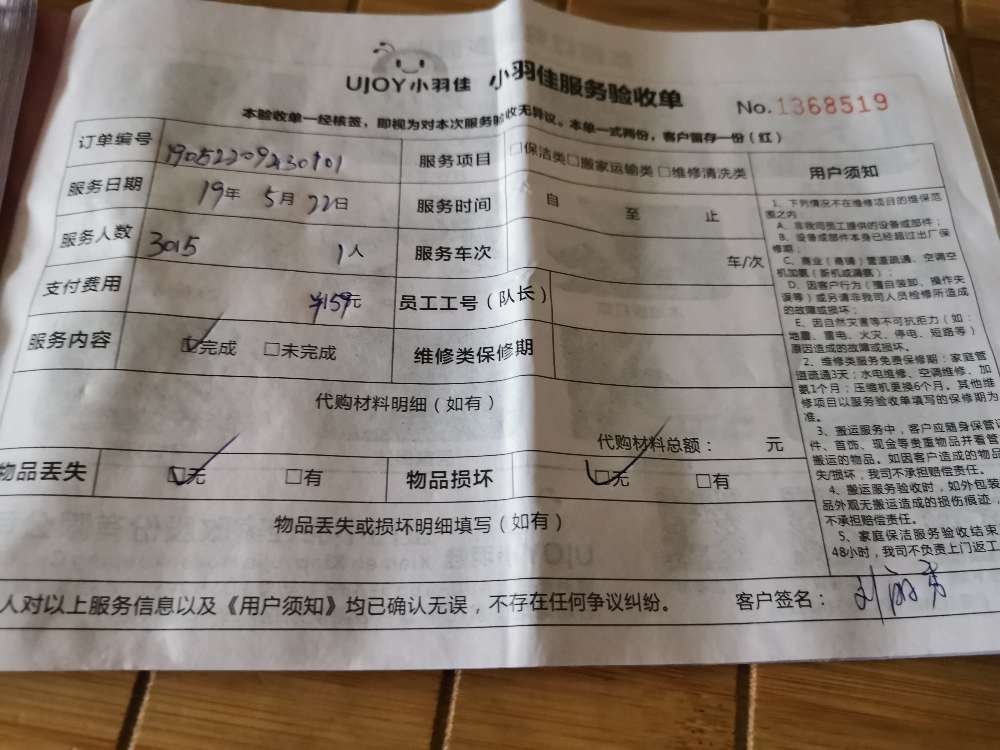 UJOY小羽佳 小羽佳服务验收单
No.1368519
本验收单一经核签，即视为对本次服务验收无异议。本单一式两份，客户留存一份（红）
订单编号 服务项目 □保洁类□搬家运输类□维修清洗类 用户须知
服务日期 19年 5月 22日 服务时间 自 至 止
服务人数 3015 1人 服务车次 车/次
支付费用 ¥159元 员工工号（队长）
服务内容 ☑完成 □未完成 维修类保修期
代购材料明细（如有）
代购材料总额： 元
物品丢失 ☑无 □有 物品损坏 ☑无 □有
物品丢失或损坏明细填写（如有）
1、下列情况不在维修项目的维保范
围之内：
A、非我司员工提供的设备或部件；
B、设备或部件本身已经超过出厂保
修期；
C、商业（商铺）管道疏通、空调空
机加氨（新机或漏氨）；
D、因客户行为（擅自装卸、操作失
误等）或另请非我司人员检修所造成
的故障或损坏；
E、因自然灾害等不可抗拒力（如：
地震、雷电、火灾、停电、短路等）
原因造成的故障或损坏。
2、维修类服务免费保修期：家庭管
道疏通3天；水电维修、空调维修、加
氨1个月；压缩机更换6个月。其他维
修项目以服务验收单填写的保修期为
准。
3、搬运服务中，客户应随身保管证
件、首饰、现金等贵重物品并看管
搬运的物品。如因客户造成的物品
失/损坏，我司不承担赔偿责任。
4、搬运服务验收时，如外包装
品外观无搬运造成的损伤痕迹，
不承担赔偿责任。
5、家庭保洁服务验收结束
48小时，我司不负责上门返工
人对以上服务信息以及《用户须知》均已确认无误，不存在任何争议纠纷。 客户签名：